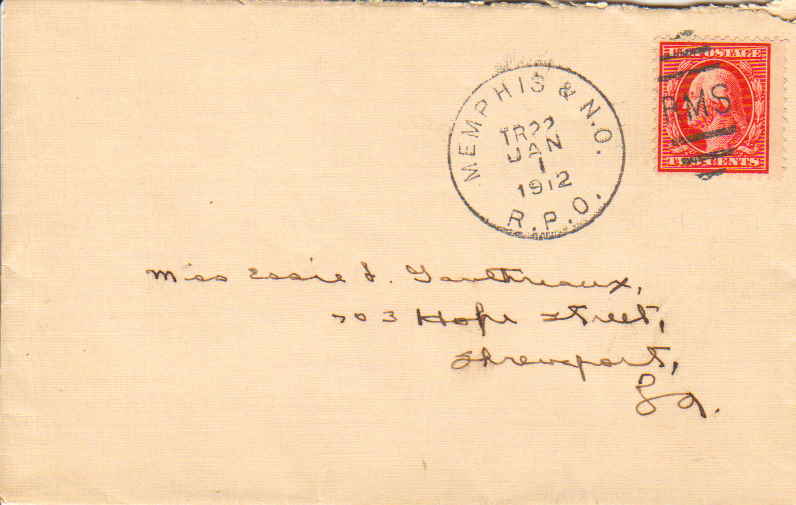 MEMPHIS & N.O.
TR22
JAN
1
1912
R.P.O.
U.S. POSTAGE
RMS
TWO CENTS
Miss Essie J. Gauthreaux,
703 Hope Street,
Shreveport,
La.